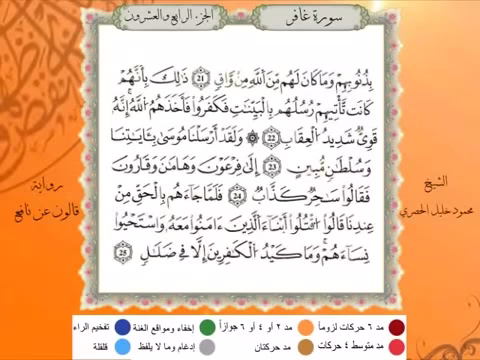 الجزء الرابع والعشرون
سورة غافر
بِذُنُوبِهِمْ وَمَا كَانَ لَهُم مِّنَ ٱللَّهِ مِن وَّاقٍ 21 ذَٰلِكَ بِأَنَّهُمْ
كَانَت تَّأْتِيهِمْ رُسُلُهُم بِالْبَيِّنَٰتِ فَكَفَرُوا فَأَخَذَهُمُ ٱللَّهُ إِنَّهُ
قَوِيٌّ شَدِيدُ ٱلْعِقَابِ 22 ۞ وَلَقَدْ أَرْسَلْنَا مُوسَىٰ بِـَٔايَٰتِنَا
وَسُلْطَٰنٍ مُّبِينٍ 23 إِلَىٰ فِرْعَوْنَ وَهَٰمَٰنَ وَقَٰرُونَ
فَقَالُوا سَٰحِرٌ كَذَّابٌ 24 فَلَمَّا جَاءَهُم بِالْحَقِّ مِنْ
عِندِنَا قَالُوا ٱقْتُلُوا أَبْنَاءَ ٱلَّذِينَ ءَامَنُوا مَعَهُ وَٱسْتَحْيُوا
نِسَاءَهُمْ وَمَا كَيْدُ ٱلْكَٰفِرِينَ إِلَّا فِي ضَلَٰلٍ 25
الشيخ
محمود خليل الحصري
رواية
قالون عن نافع
مد ٦ حركات لزوماً
مد ٢ أو ٤ أو ٦ جوازاً
إخفاء ومواقع الغنة
تفخيم الراء
مد متوسط ٤ حركات
مد حركتان
إدغام وما لا يلفظ
قلقلة